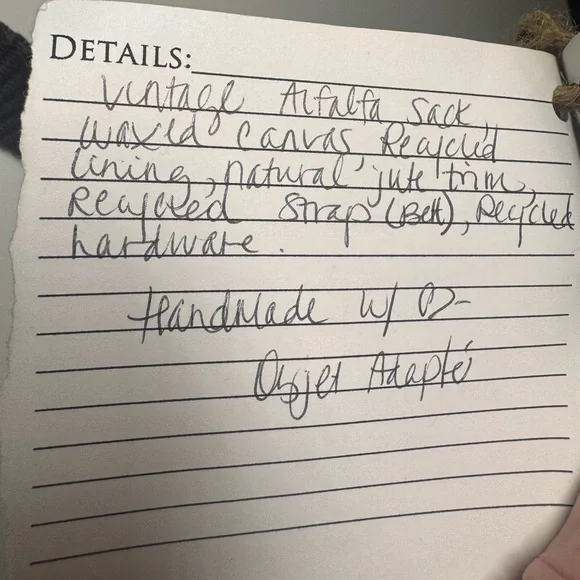 DETAILS:
Vintage Alfalfa Sack,
waxed canvas, Recycled
lining, natural jute trim,
Recycled Strap (Belt), Recycled
hardware.
Handmade w/
Objet Adapté